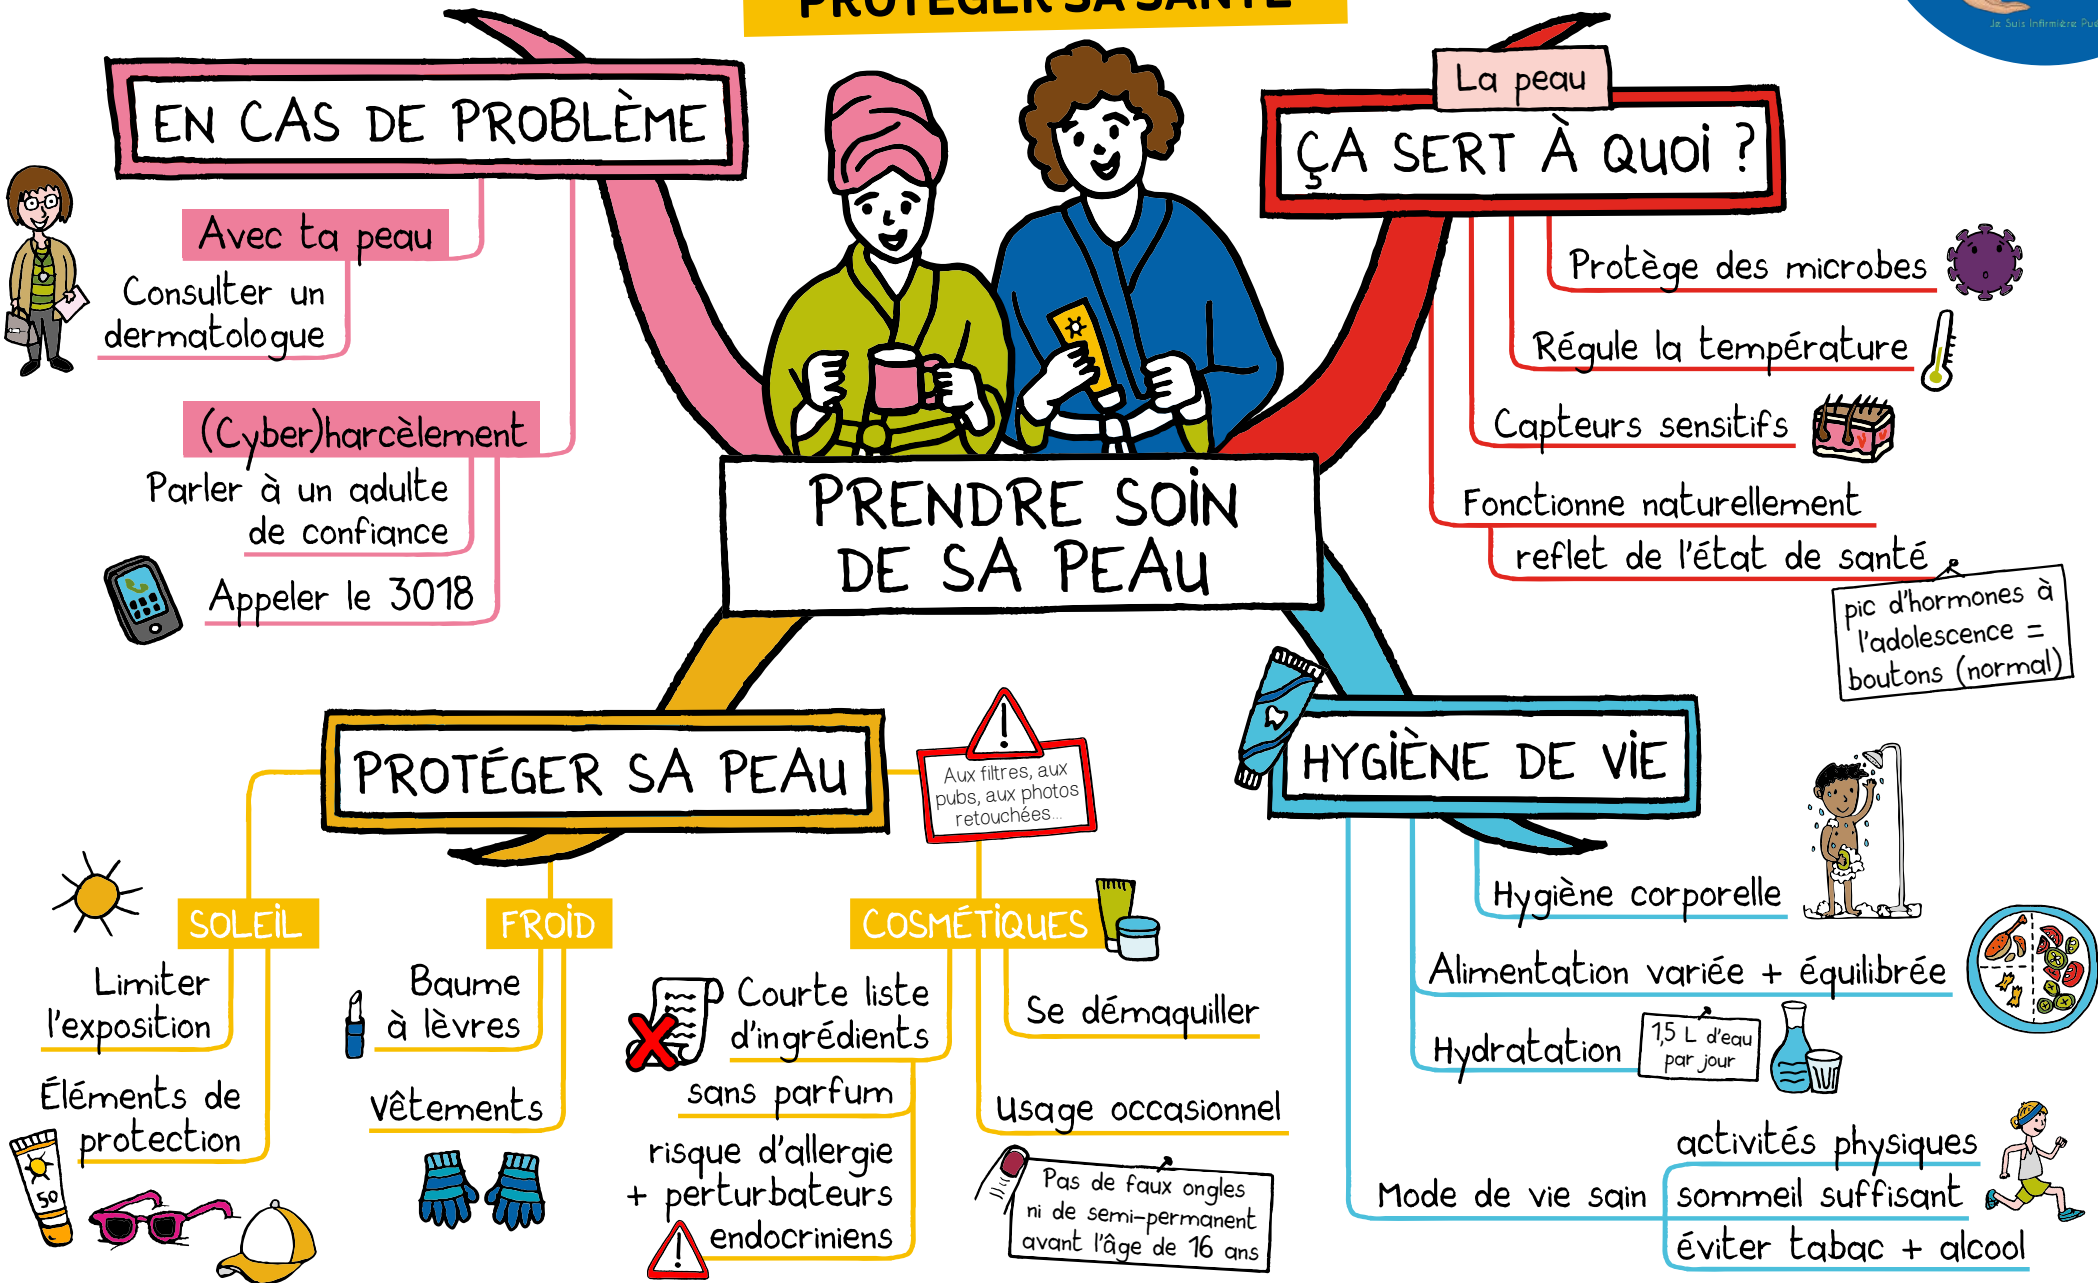 PROTÉGER SA SANTÉ
Je Suis Infirmière Pué
EN CAS DE PROBLÈME
Avec ta peau
Consulter un
dermatologue
(Cyber)harcèlement
Parler à un adulte
de confiance
Appeler le 3018
La peau
ÇA SERT À QUOI ?
Protège des microbes
Régule la température
Capteurs sensitifs
Fonctionne naturellement
reflet de l'état de santé
pic d'hormones à
l'adolescence =
boutons (normal)
PRENDRE SOIN
DE SA PEAU
PROTÉGER SA PEAU
Aux filtres, aux
pubs, aux photos
retouchées...
SOLEIL
Limiter
l'exposition
Éléments de
protection
50
FROID
Baume
à lèvres
Vêtements
COSMÉTIQUES
Courte liste
d'ingrédients
sans parfum
risque d'allergie
+ perturbateurs
endocriniens
Se démaquiller
Usage occasionnel
Pas de faux ongles
ni de semi-permanent
avant l'âge de 16 ans
HYGIÈNE DE VIE
Hygiène corporelle
Alimentation variée + équilibrée
Hydratation
1,5 L d'eau
par jour
Mode de vie sain
activités physiques
sommeil suffisant
éviter tabac + alcool